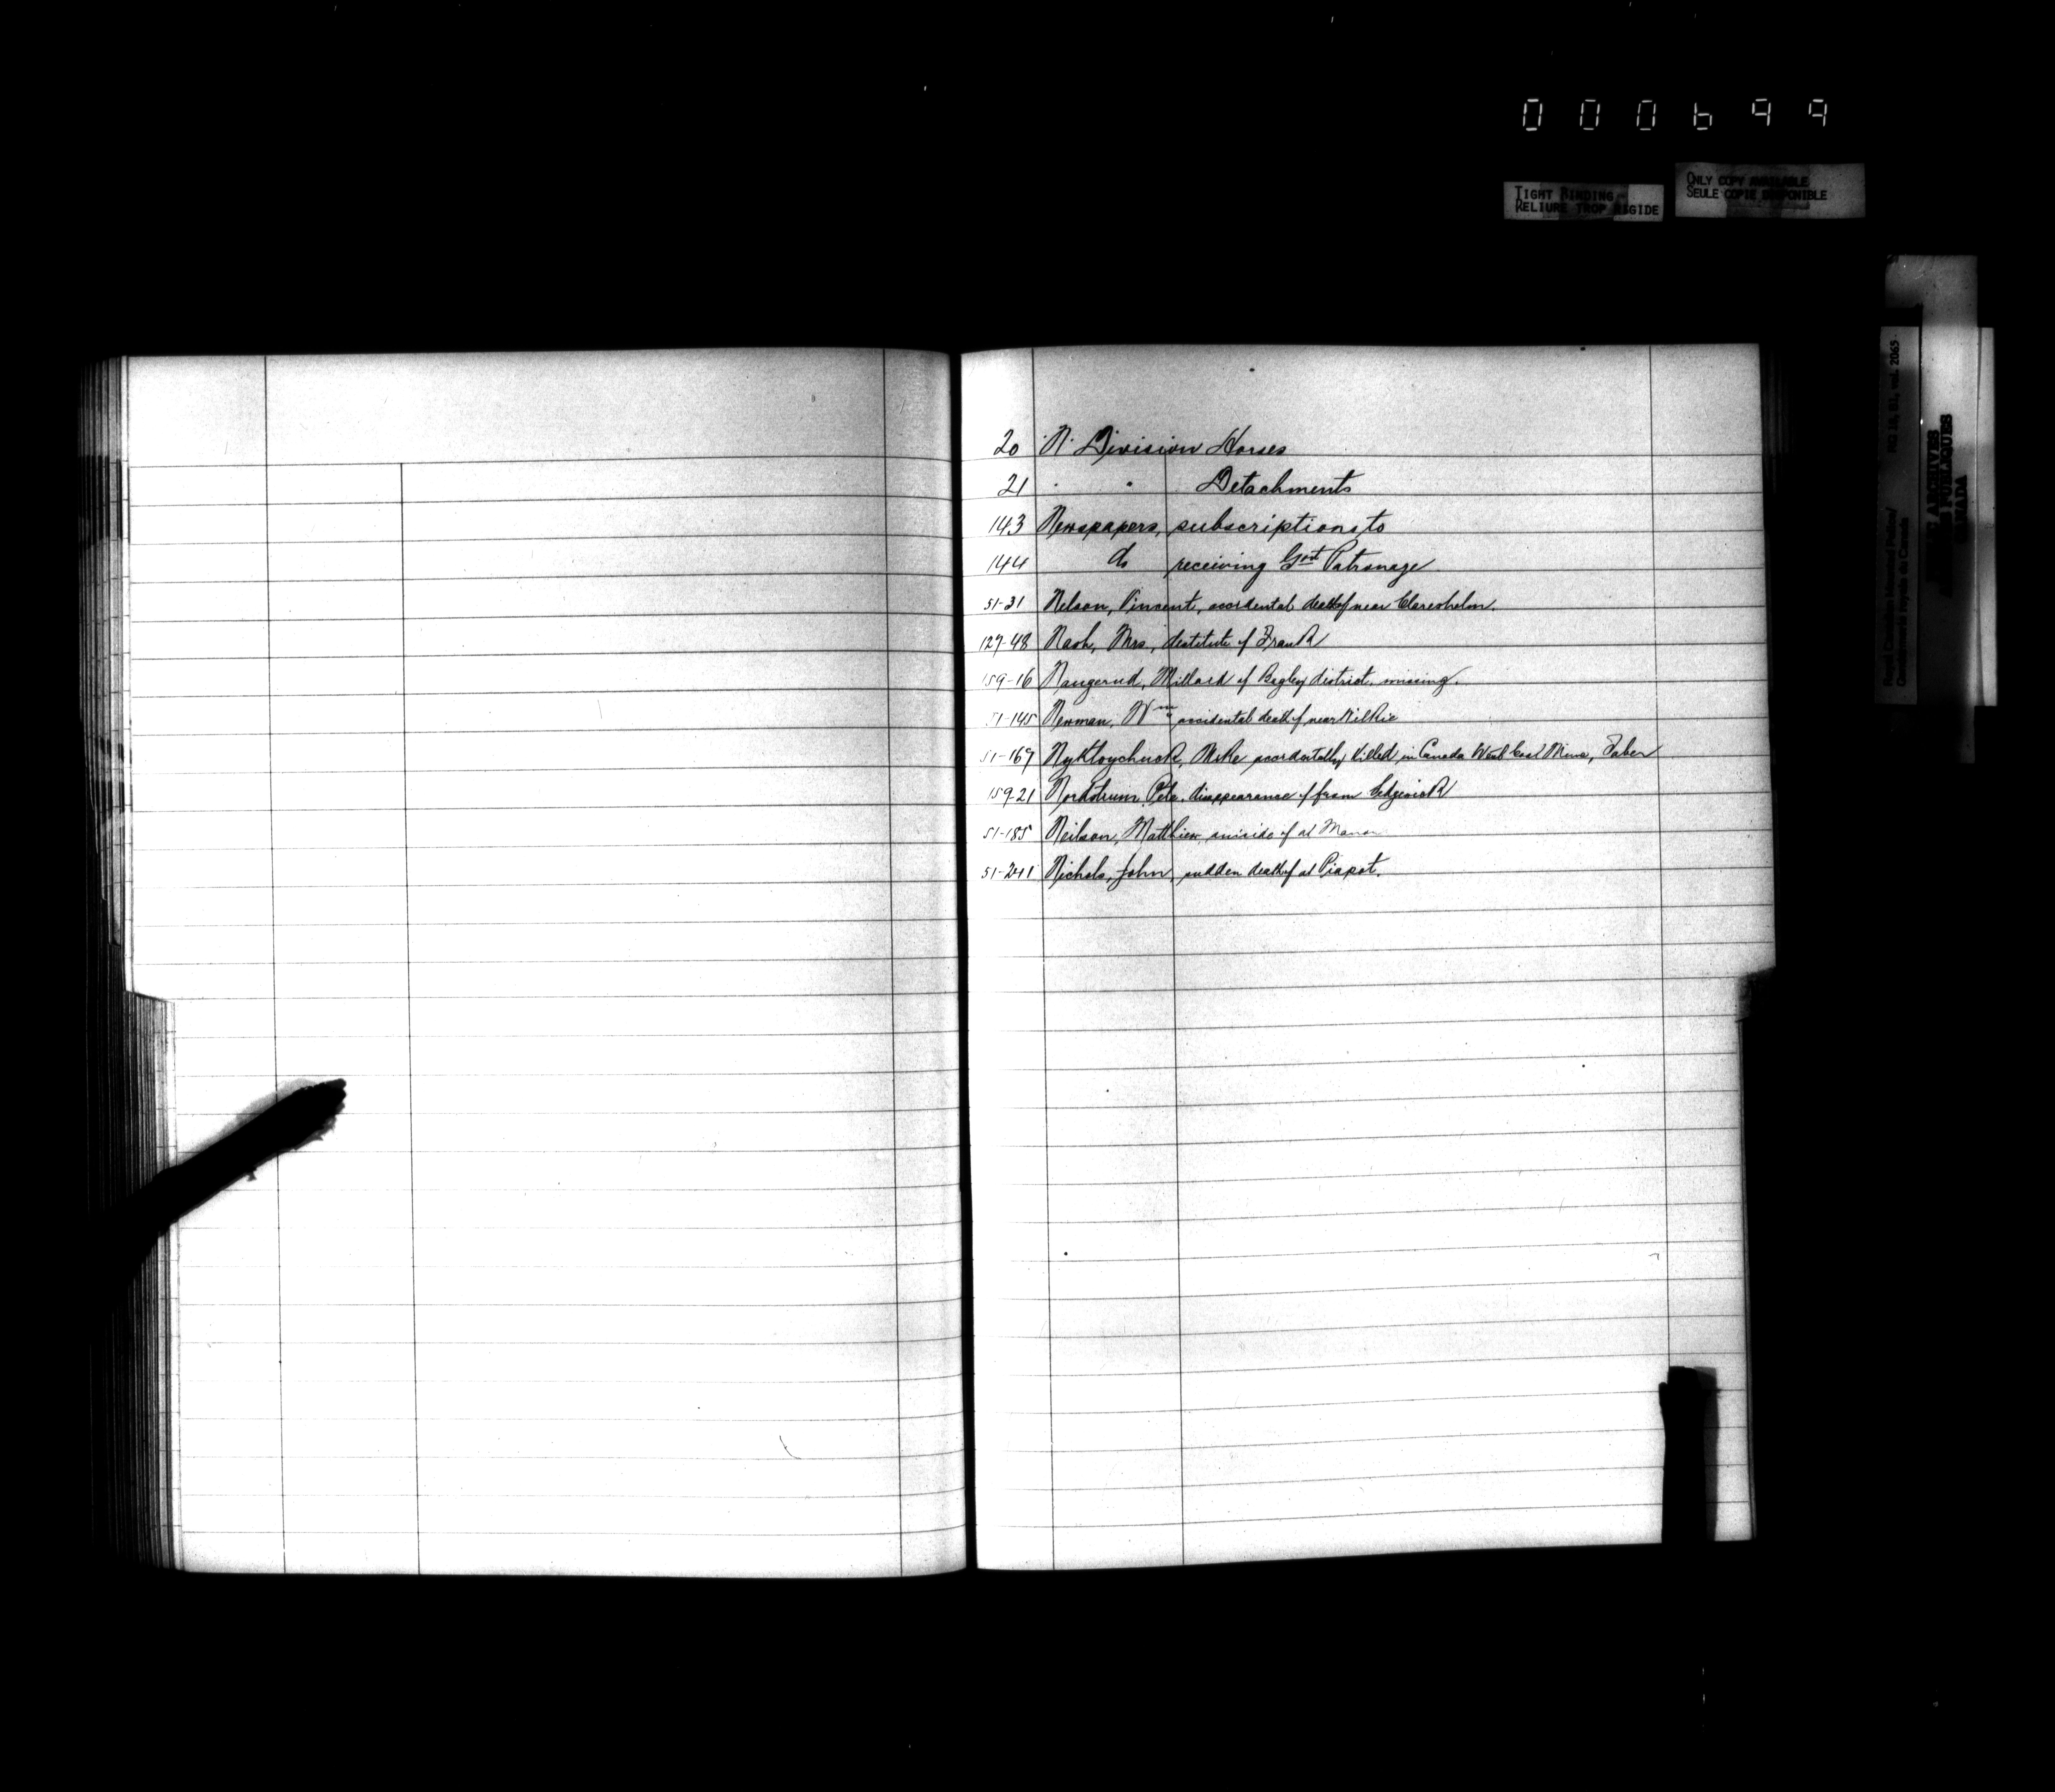 000699
TIGHT BINDING
RELIURE TROP RIGIDE
ONLY COPY AVAILABLE
SEULE COPIE DISPONIBLE
Royal Canadian Mounted Police/ RG 18, B1, vol. 2063
Gendarmerie royale du Canada
ARCHIVES
PUBLIQUES
CANADA
20 'N' Division Horses
21 " " Detachments
143 Newspapers, subscriptions to
144 do receiving Govt Patronage
51-31 Nelson, Vincent, accidental death of near Claresholm.
127-48 Nash, Mrs, destitute of Frank
159-16 Naugerud, Millard of Bagley district, missing.
51-145 Newman, Wm accidental death of near Wilkie
51-167 Mike accidentally killed in Canada West Coal Mine, Taber
159-21 Nordstrum, Pete, disappearance of from Sedgewick
51-185 Neilson, Matthier, suicide of at Manor
51-241 Nichols, John, sudden death of at Piapot.